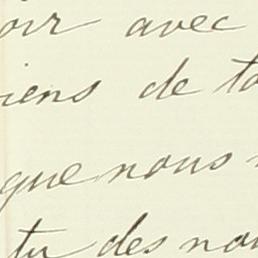 oir avec
iens de to
que nous
tu des nou